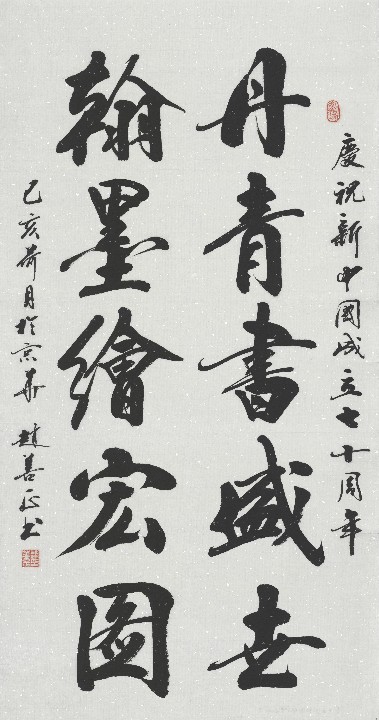 慶祝新中國成立七十周年
丹青書盛世
翰墨繪宏图
己亥荷月於京華 趙善